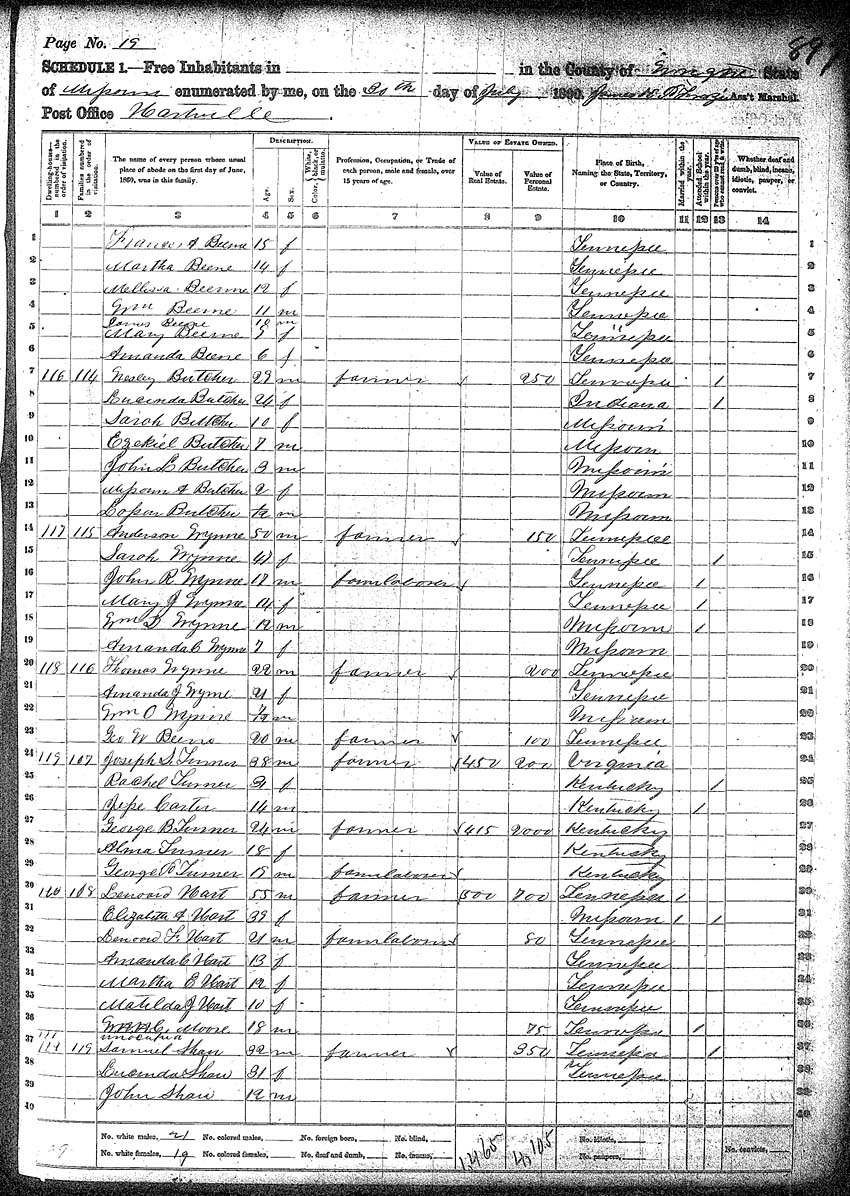 Page No. 19
89
SCHEDULE 1.—Free Inhabitants in in the County of State
of Missouri enumerated by me, on the 30th day of July 1860. Ass't Marshal.
Post Office Hartville
DESCRIPTION. VALUE OF ESTATE OWNED.
Dwelling-houses—numbered in the order of visitation. Families numbered in the order of visitation. The name of every person whose usual place of abode on the first day of June, 1860, was in this family. Age. Sex. Color, {White, black, or mulatto. Profession, Occupation, or Trade of each person, male and female, over 15 years of age. Value of Real Estate. Value of Personal Estate. Place of Birth, Naming the State, Territory, or Country. Married within the year. Attended School within the year. Persons over 20 y'rs of age who cannot read & write. Whether deaf and dumb, blind, insane, idiotic, pauper, or convict.
1 2 3 4 5 6 7 8 9 10 11 12 13 14
1 Frances A Beene 15 f Tennessee 1
2 Martha Beene 14 f Tennessee 2
3 Mellissa Beene 12 f Tennessee 3
4 Wm Beerne 11 m Tennessee 4
James Beene 10 m
5 Mary Beerne 7 f Tennessee 5
6 Amanda Beene 6 f Tennessee 6
7 116 114 Wesley Butcher 29 m farmer 250 Tennessee 1 7
8 Lucinda Butcher 26 f Indiana 1 8
9 Sarah Butcher 10 f Missouri 9
10 Ezekiel Butcher 7 m Missouri 10
11 John L Butcher 3 m Missouri 11
12 Missouri A Butcher 2 f Missouri 12
13 Butcher m Missouri 13
14 117 115 Anderson Wynne 50 m farmer 150 Tennessee 14
15 Sarah Wynne 47 f Tennessee 1 15
16 John R Wynne 17 m farm laborer Tennessee 1 16
17 Mary J Wynne 14 f Tennessee 1 17
18 Wm D Wynne 12 m Missouri 1 18
19 Amanda C Wynne 7 f Missouri 19
20 118 116 Thomas Wynne 22 m farmer 200 Tennessee 20
21 Amanda J Wynne 21 f Tennessee 21
22 Wm O Wynne m Missouri 22
23 Geo W Beene 20 m farmer 100 Tennessee 23
24 119 107 Joseph S Turner 38 m farmer 450 200 Virginia 24
25 Rachel Turner 31 f Kentucky 1 25
26 Jesse Carter 14 m Kentucky 1 26
27 George B Turner 24 m farmer 415 2000 Kentucky 27
28 Alma Turner 18 f Kentucky 28
29 George Turner 19 m farm laborer Kentucky 29
30 108 Lenoard Hart 55 m farmer 500 700 Tennessee 1 30
31 Elizabeth A Hart 39 f Missouri 1 1 31
32 Lenoard F Hart 21 m farm laborer 80 Tennessee 32
33 Amanda C Hart 13 f Tennessee 33
34 Martha E Hart 12 f Tennessee 34
35 Matilda J Hart 10 f Tennessee 35
36 Moore 18 m 75 Tennessee 1 36
unoccupied
37 119 Samuel Shaw 32 m farmer 350 Tennessee 1 37
38 Lucinda Shaw 31 f Tennessee 38
39 John Shaw 12 m 39
40 40
No. white males, 21 No. colored males, No. foreign born, No. blind, 1,465 4,105 No. idiotic,
No. white females, 19 No. colored females, No. deaf and dumb, No. insane, No. paupers, No. convicts,